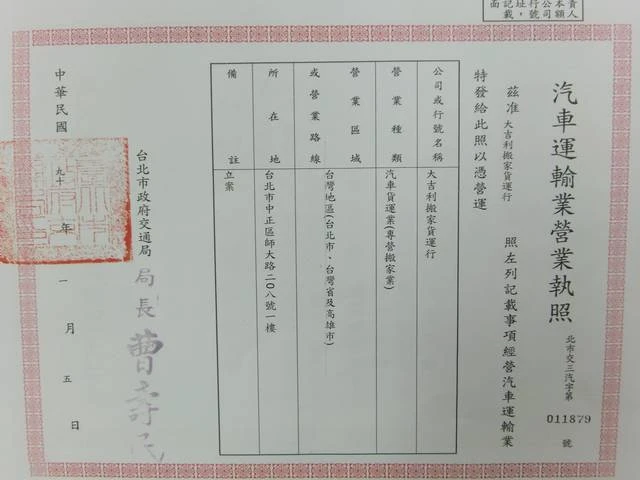 汽車運輸業營業執照
北市交三汽字第
011879
號
茲准 大吉利搬家貨運行 照左列記載事項經營汽車運輸業
特發給此照以憑營運
公司或行號名稱
大吉利搬家貨運行
營業種類
汽車貨運業(專營搬家業)
營業區域
或營業路線
台灣地區(台北市、台灣省及高雄市)
所在地
台北市中正區師大路二0八號一樓
備註
立案
台北市政府交通局
局長 曹壽民
中華民國 九十 年 一 月 五 日